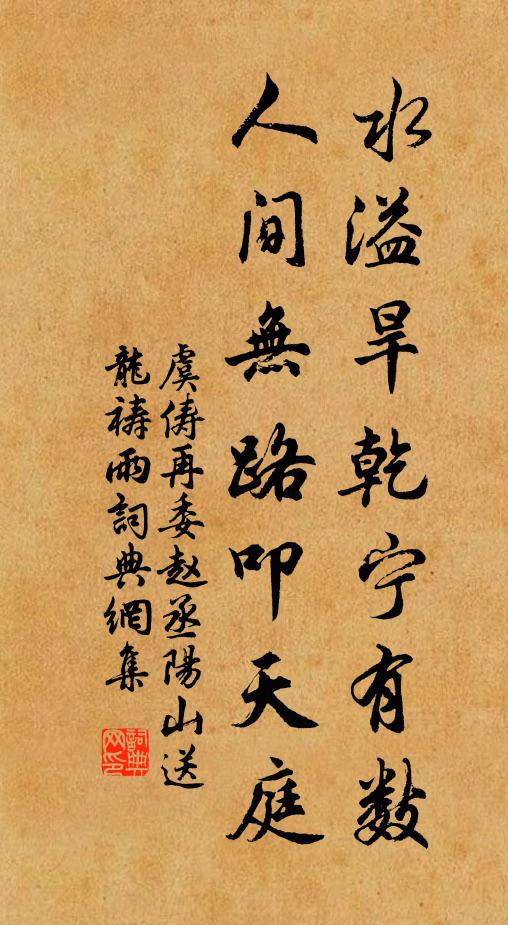 水溢旱乾宁有数
人间無路叩天庭
虞俦再委赵丞陽山送
龍祷雨詞典網集
詞典网印